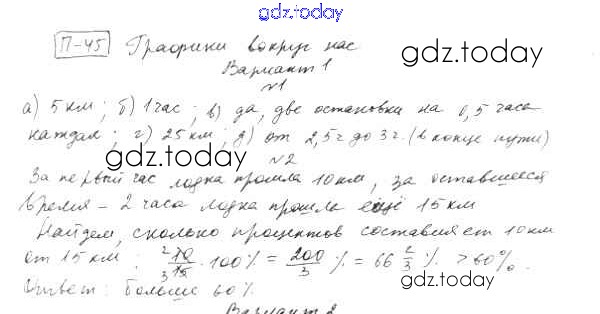 gdz.today
П-45 Графики вокруг нас
gdz.today
Вариант 1
№1
а) 5 км; б) 1 час; в) да, две остановки на 0,5 часа
каждая; г) 25 км; д) от 2,5 ч до 3 ч. (в конце пути)
gdz.today
№2
За первый час лодка прошла 10 км, за оставшееся
время – 2 часа лодка прошла ещё 15 км
Найдем, сколько процентов составляет 10 км
от 15 км: 2 10/3 15 · 100 % = 200/3 % = 66 2/3 % > 60%.
gdz.today
Ответ: больше 60%
Вариант 2